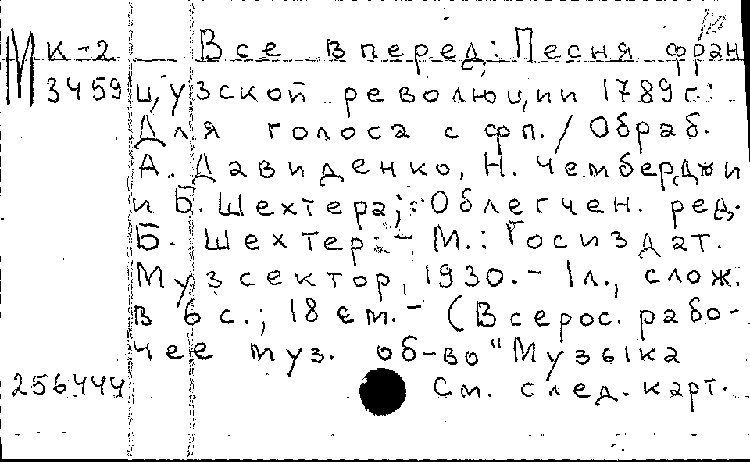 М к-2 Все вперед: Песня фран
3459 цузской революции 1789 г.:
Для голоса с фп. / Обраб.
А. Давиденко, Н. Чемберджи
и Б. Шехтера; Облегчен. ред.
Б. Шехтер. - М.: Госиздат.
Музсектор, 1930. - 1 л., слож.
в 6 с.; 18 см. - (Всерос. рабо-
чее муз. об-во "Музыка
256444 См. след. карт.